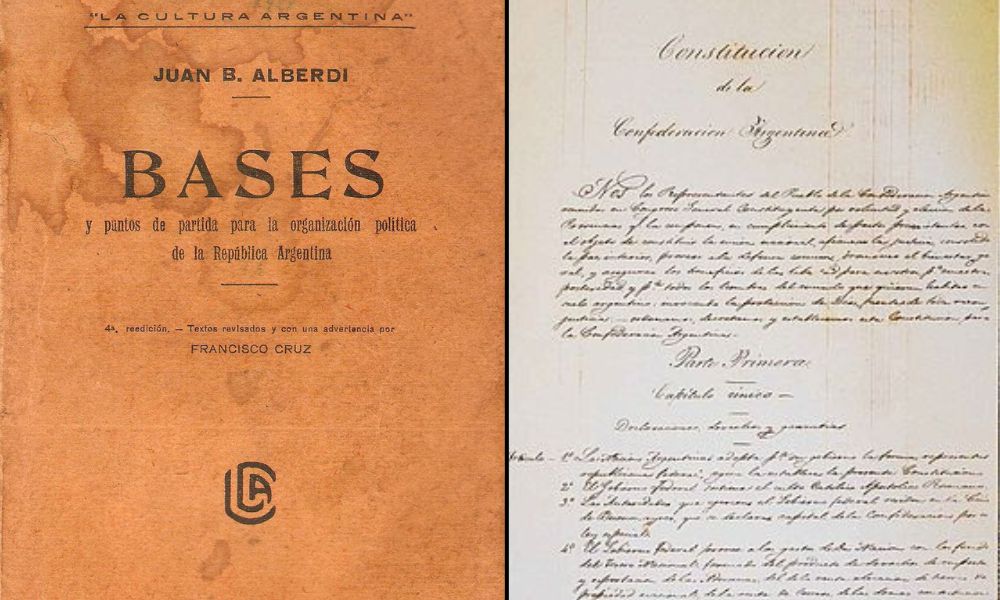 "LA CULTURA ARGENTINA"
JUAN B. ALBERDI
BASES
y puntos de partida para la organización política
de la República Argentina
4ª. reedición. — Textos revisados y con una advertencia por
FRANCISCO CRUZ
Constitucion
de la
Confederacion Argentina
Nos los Representantes del Pueblo de la Confederacion Argentina
reunidos en Congreso General Constituyente por voluntad y eleccion de las
Provincias que la componen, en cumplimiento de pactos preexistentes con
el objeto de constituir la union nacional, afianzar la justicia, consolidar
la paz interior, proveer a la defensa comun, promover el bienestar gene
ral, y asegurar los beneficios de la libertad para nosotros pª nuestra
posteridad y pª todos los hombres del mundo que quieran habitar en
suelo argentino, invocando la proteccion de Dios, fuente de toda razon y
justicia, — ordenamos, decretamos y establecemos esta Constitucion para
la Confederacion Argentina.
Parte Primera
Capítulo único —
Declaraciones, derechos y garantias
1º La Nacion Argentina adopta pª su gobierno la forma representativa
republicana federal, segun la establece la presente Constitucion
2º El Gobierno Federal sostiene el culto Católico Apostólico Romano
3º Las Autoridades que ejercen el Gobierno federal residen en la Ciudad
de Buenos ayres, que se declara capital de la Confederacion por una
ley especial
4º El Gobierno Federal provee a los gastos de la Nacion con los fondos
del Tesoro Nacional, formado del producto de derechos de
y esportacion de las